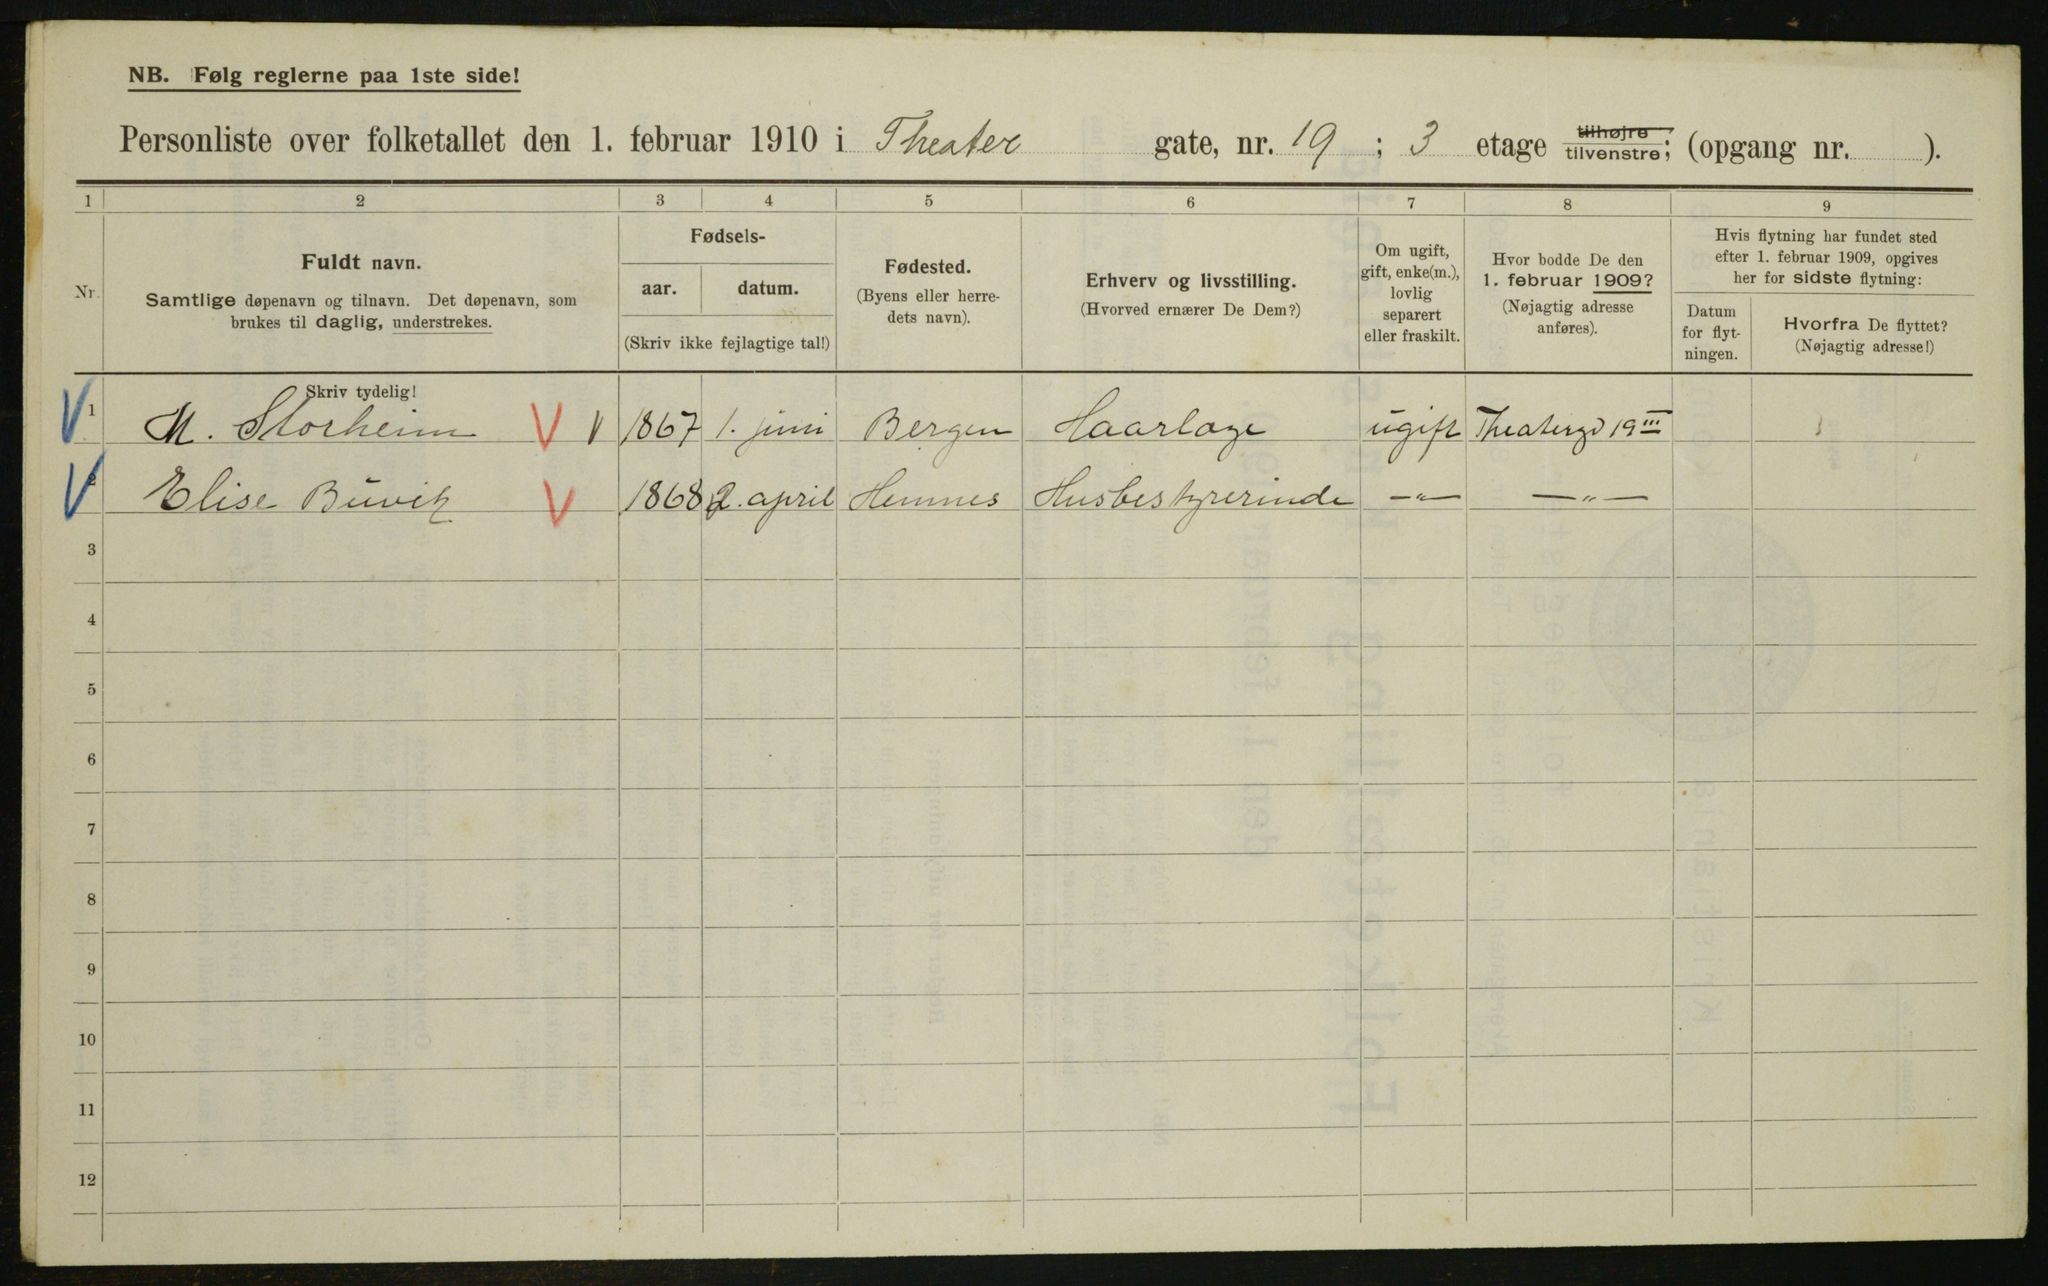 NB. Følg reglerne paa 1ste side!
Personliste over folketallet den 1. februar 1910 i Theater gate, nr. 19; 3 etage tilhøjre tilvenstre; (opgang nr. ).
1 2 3 4 5 6 7 8 9
Nr.
Fuldt navn.
Samtlige døpenavn og tilnavn. Det døpenavn, som
brukes til daglig, understrekes.
Skriv tydelig!
Fødsels-
aar. datum.
(Skriv ikke fejlagtige tal!)
Fødested.
(Byens eller herre-
dets navn).
Erhverv og livsstilling.
(Hvorved ernærer De Dem?)
Om ugift,
gift, enke(m.),
lovlig
separert
eller fraskilt.
Hvor bodde De den
1. februar 1909?
(Nøjagtig adresse
anføres).
Hvis flytning har fundet sted
efter 1. februar 1909, opgives
her for sidste flytning:
Datum
for flyt-
ningen.
Hvorfra De flyttet?
(Nøjagtig adresse!)
1 M. Storheim 1867 1. juni Bergen Haarloze ugift Theatergd 19 III
2 Elise Buvik 1868 2. april Hemnes Husbestyrerinde —„— —„—
3
4
5
6
7
8
9
10
11
12